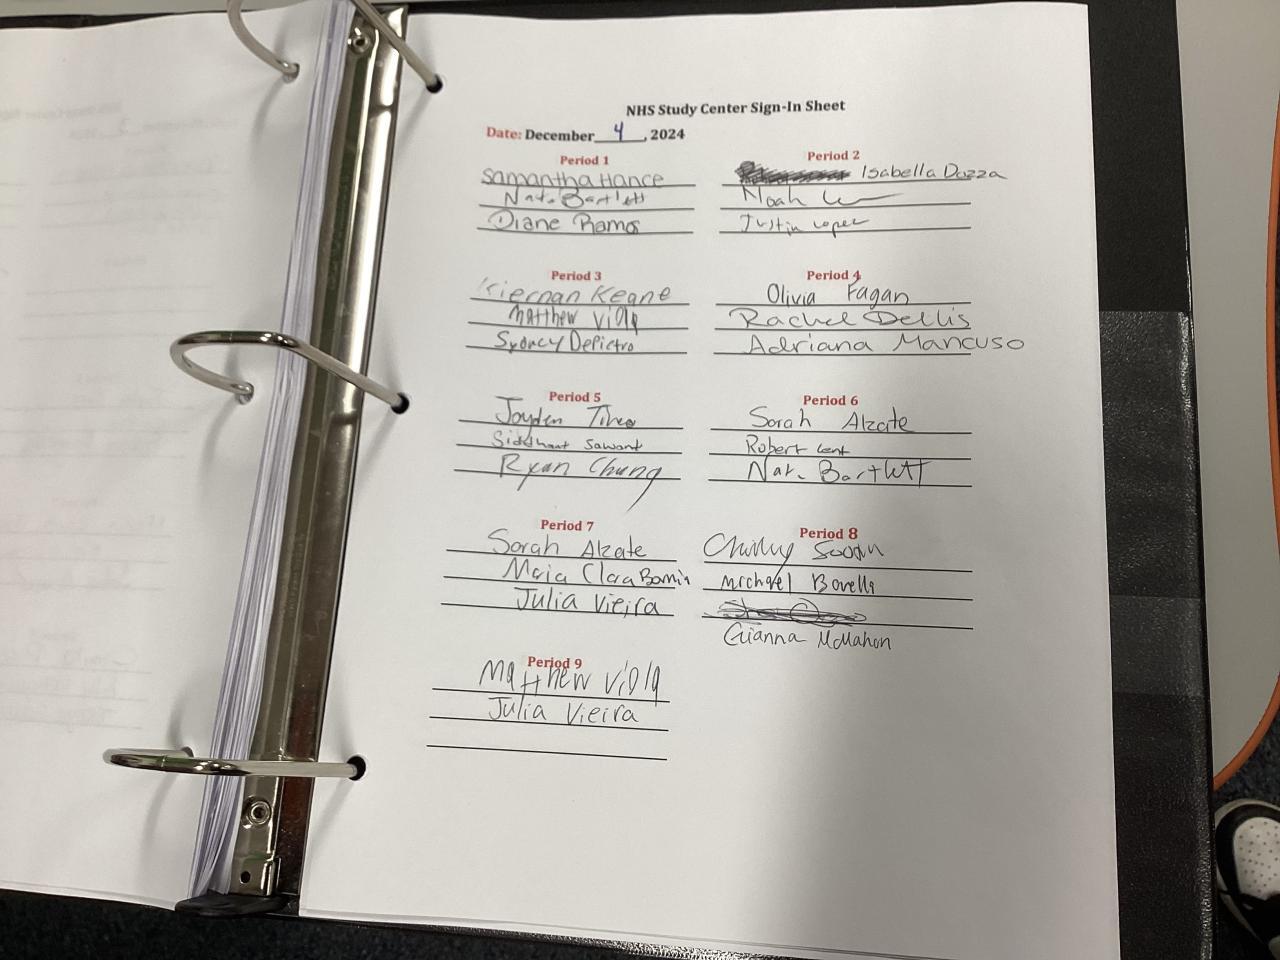 NHS Study Center Sign-In Sheet
Date: December 4, 2024
Period 1
Samantha Hance
Nate Bartlett
Diane Ramos
Period 2
Isabella Dazza
Noah
Justin Lopez
Period 3
Kiernan Keane
Matthew Viola
Sydney DePietro
Period 4
Olivia Fagan
Rachel Dellis
Adriana Mancuso
Period 5
Jayden
Siddhant Sawant
Ryan Chung
Period 6
Sarah Alzate
Robert Lent
Nate Bartlett
Period 7
Sarah Alzate
Maria Clara
Julia Vieira
Period 8
Michael
Gianna McMahon
Period 9
Matthew Viola
Julia Vieira